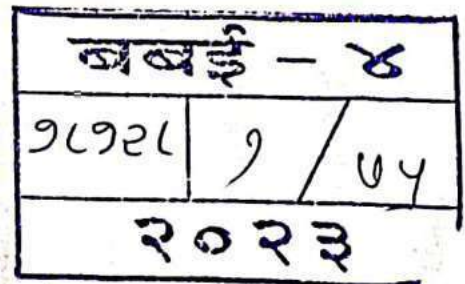 बबई - ४
१८१२८ १ / ७५
२०२३